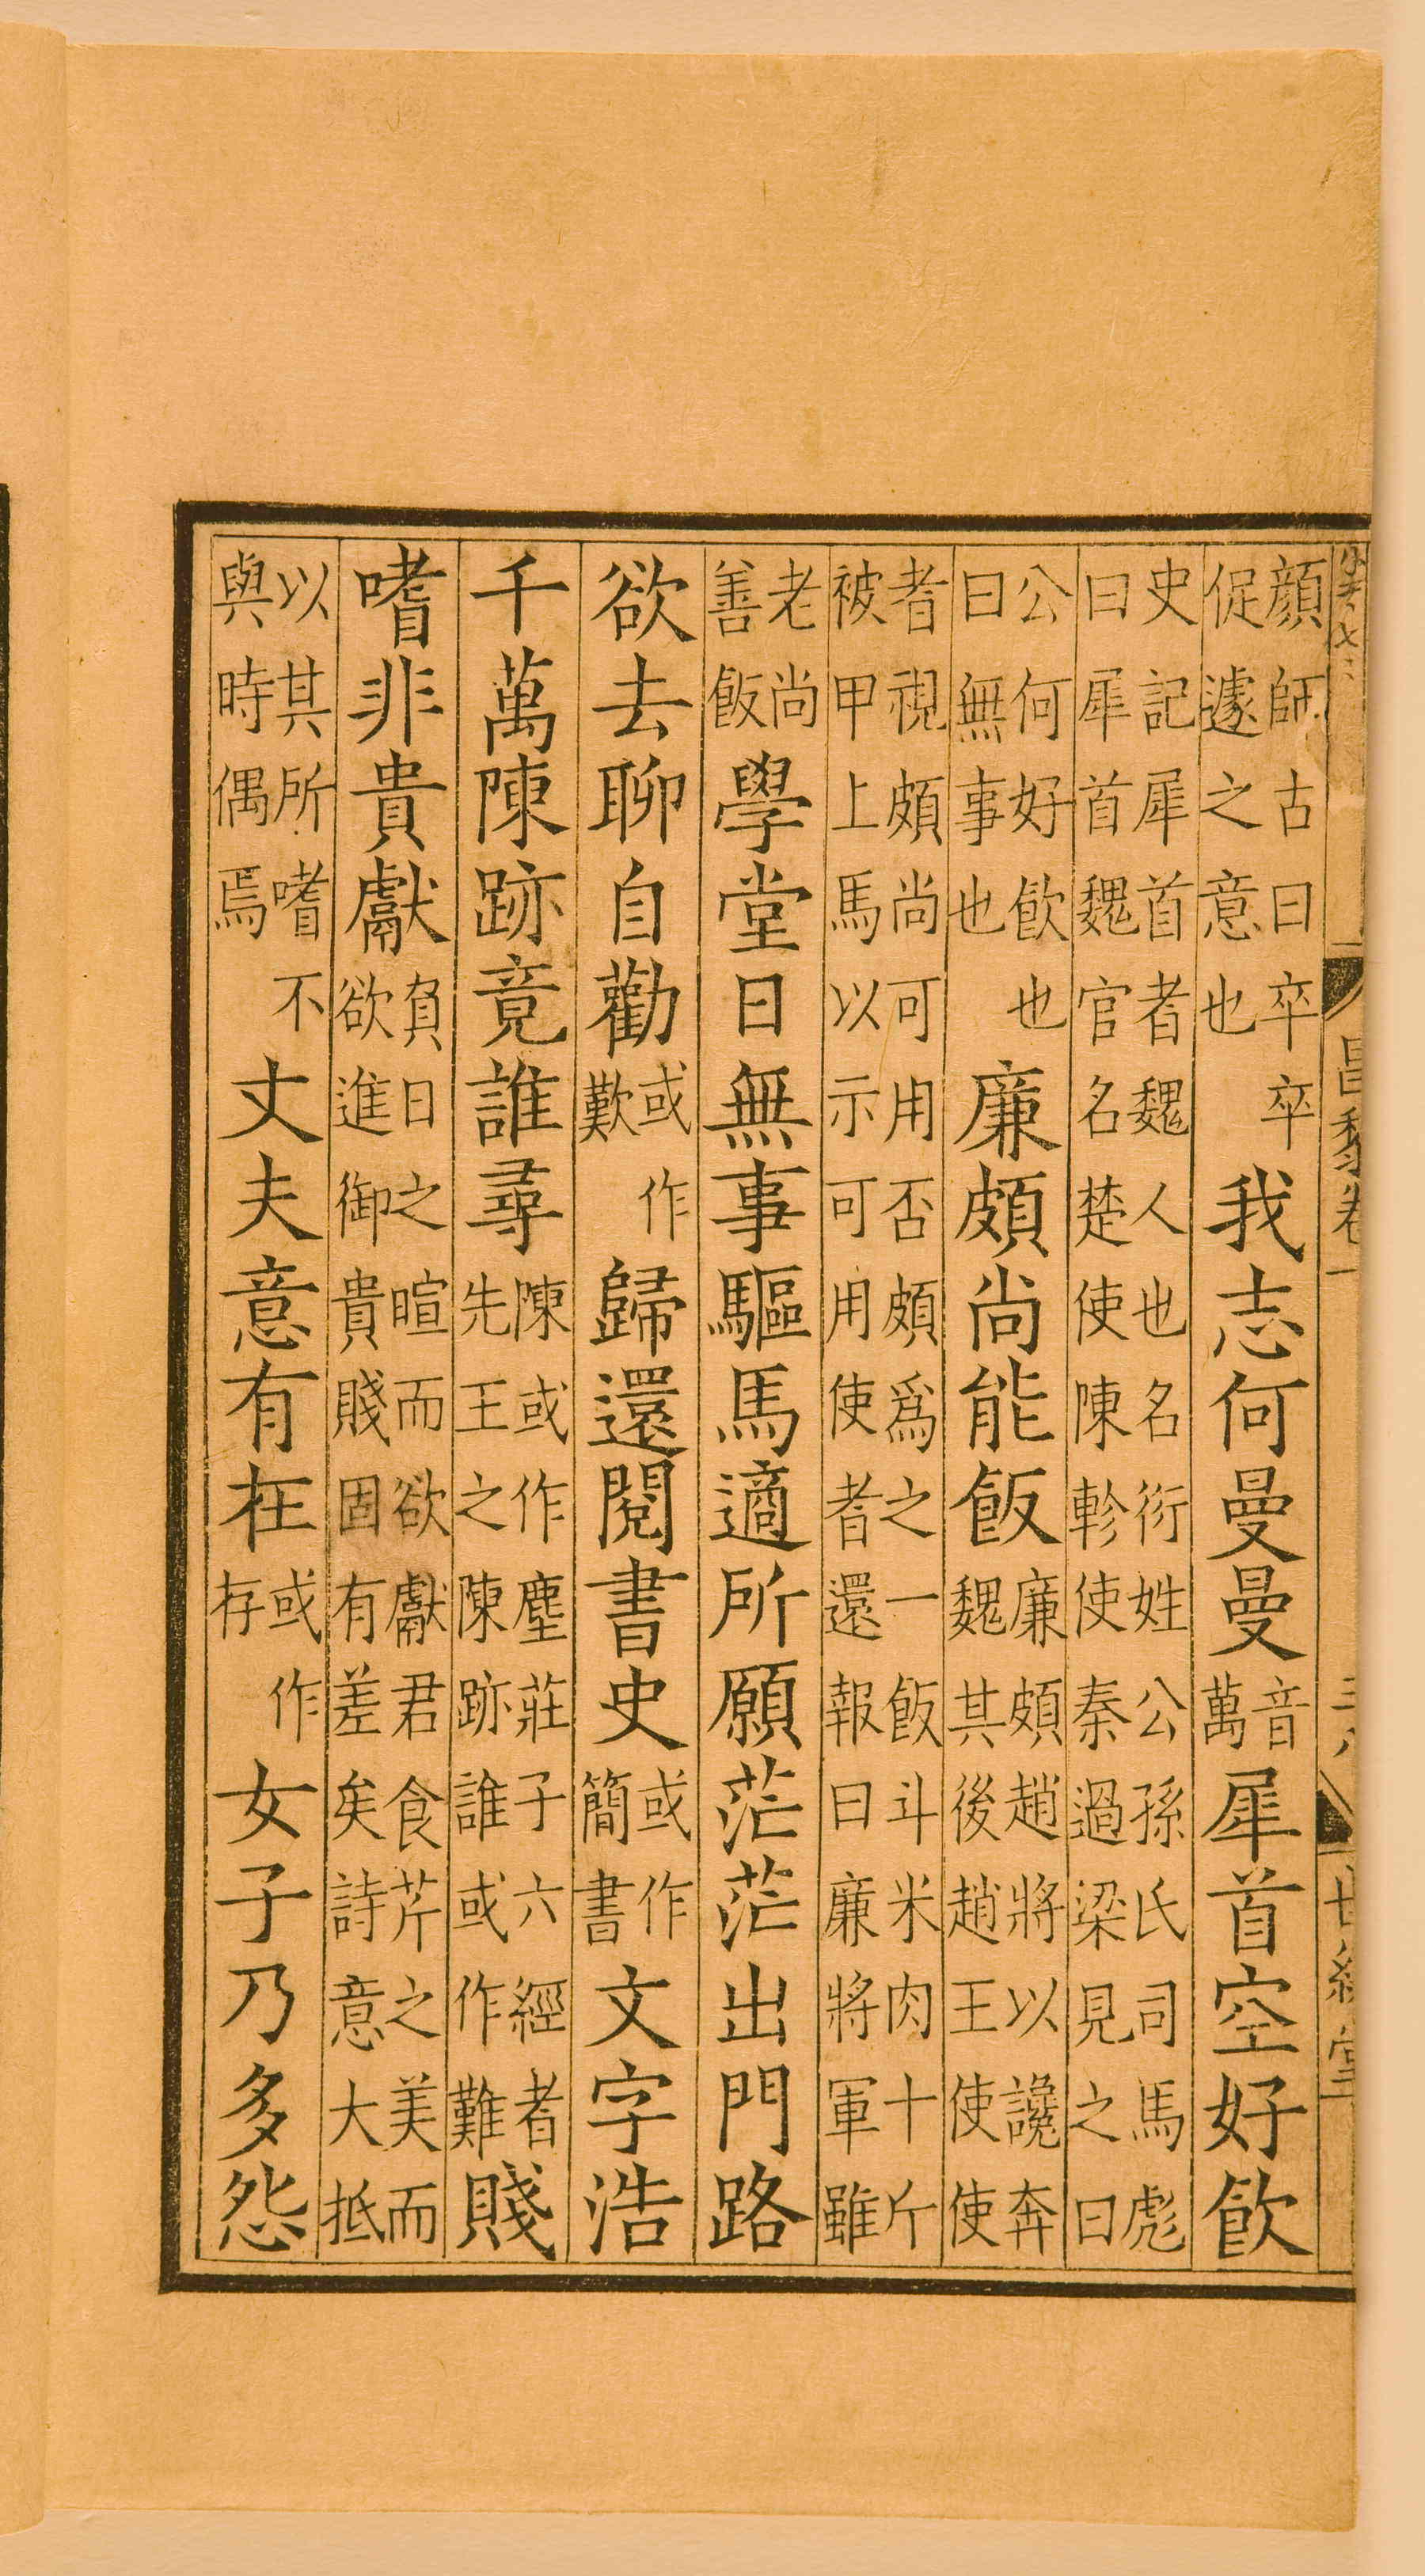 顔師古曰卒卒
促遽之意也
我志何曼曼
音
萬
犀首空好飲
史記犀首者魏人也名衍姓公孫氏司馬彪
曰犀首魏官名楚使陳軫使秦過梁見之曰
公何好飲也
曰無事也
廉頗尚能飯
廉頗趙將以讒奔
魏其後趙王使使
者視頗尚可用否頗爲之一飯斗米肉十斤
被甲上馬以示可用使者還報曰廉將軍雖
老尚
善飯
學堂日無事驅馬適所願茫茫出門路
欲去聊自勸
或作
歎
歸還閱書史
或作
簡書
文字浩
千萬陳跡竟誰尋
陳或作塵莊子六經者
先王之陳跡誰或作難
賤
嗜非貴獻
負日之暄而欲獻君食芹之美而
欲進御貴賤固有差矣詩意大抵
以其所嗜不
與時偶焉
丈夫意有在
或作
存
女子乃多怨
昌黎卷一